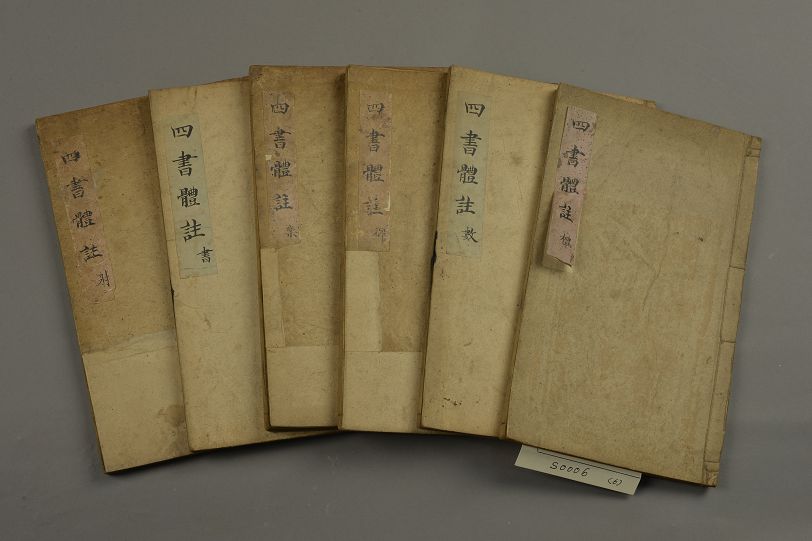 四書體註 禮
四書體註 數
四書體註 御
四書體註 樂
四書體註 書
四書體註 射
S0006 (6)